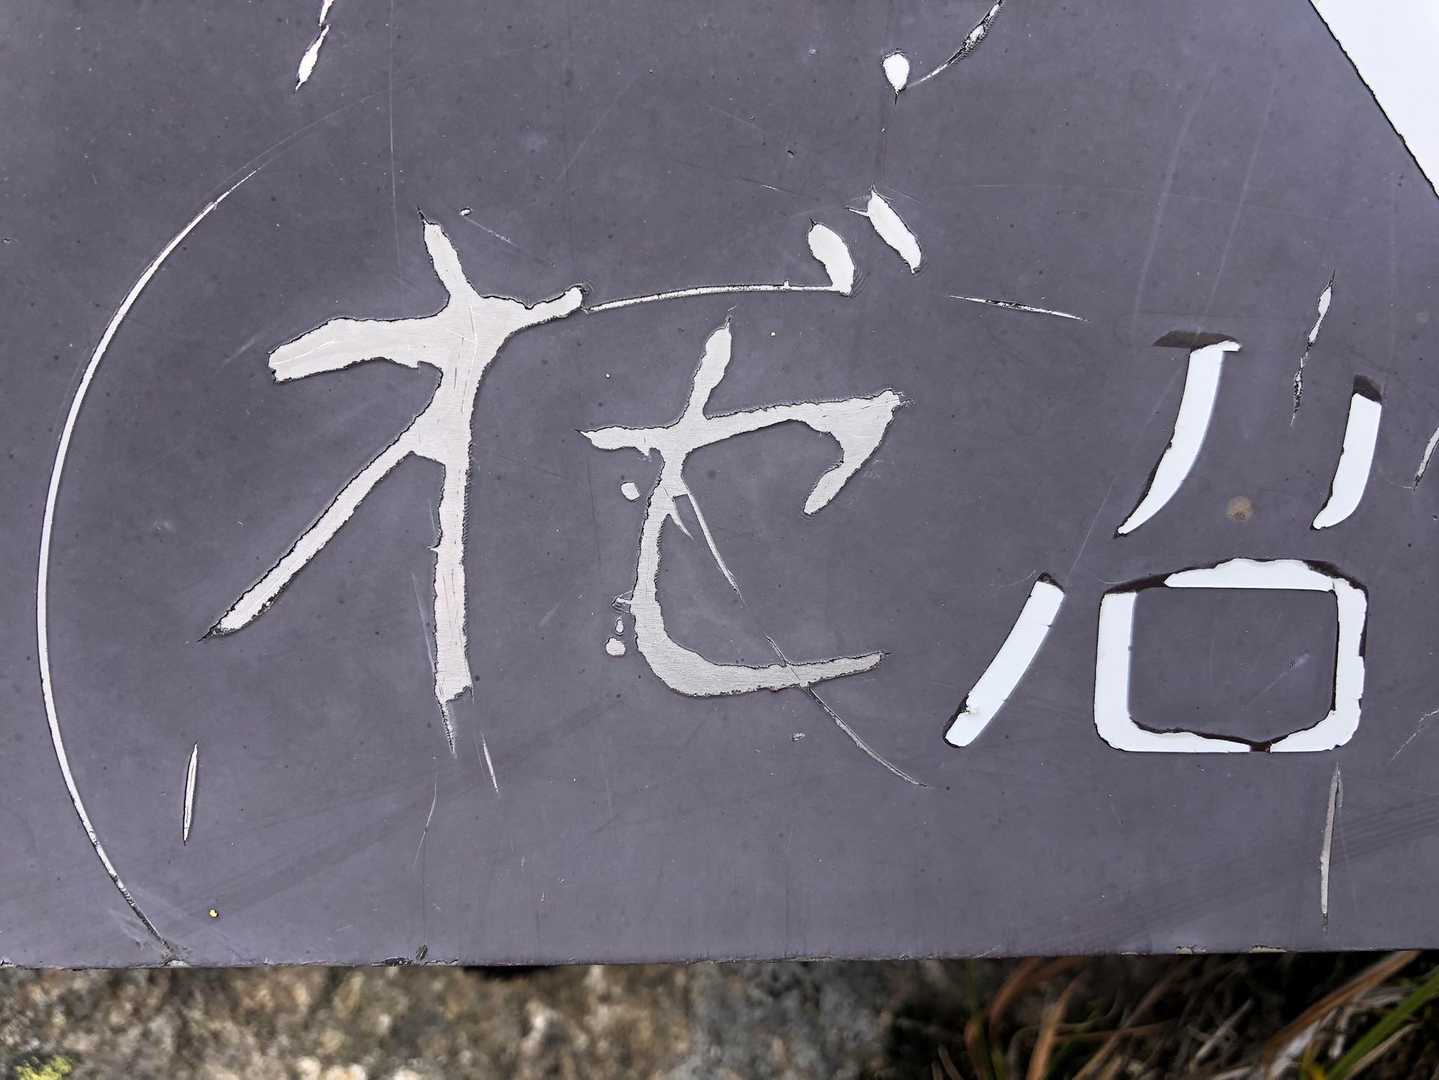 オゼ沼